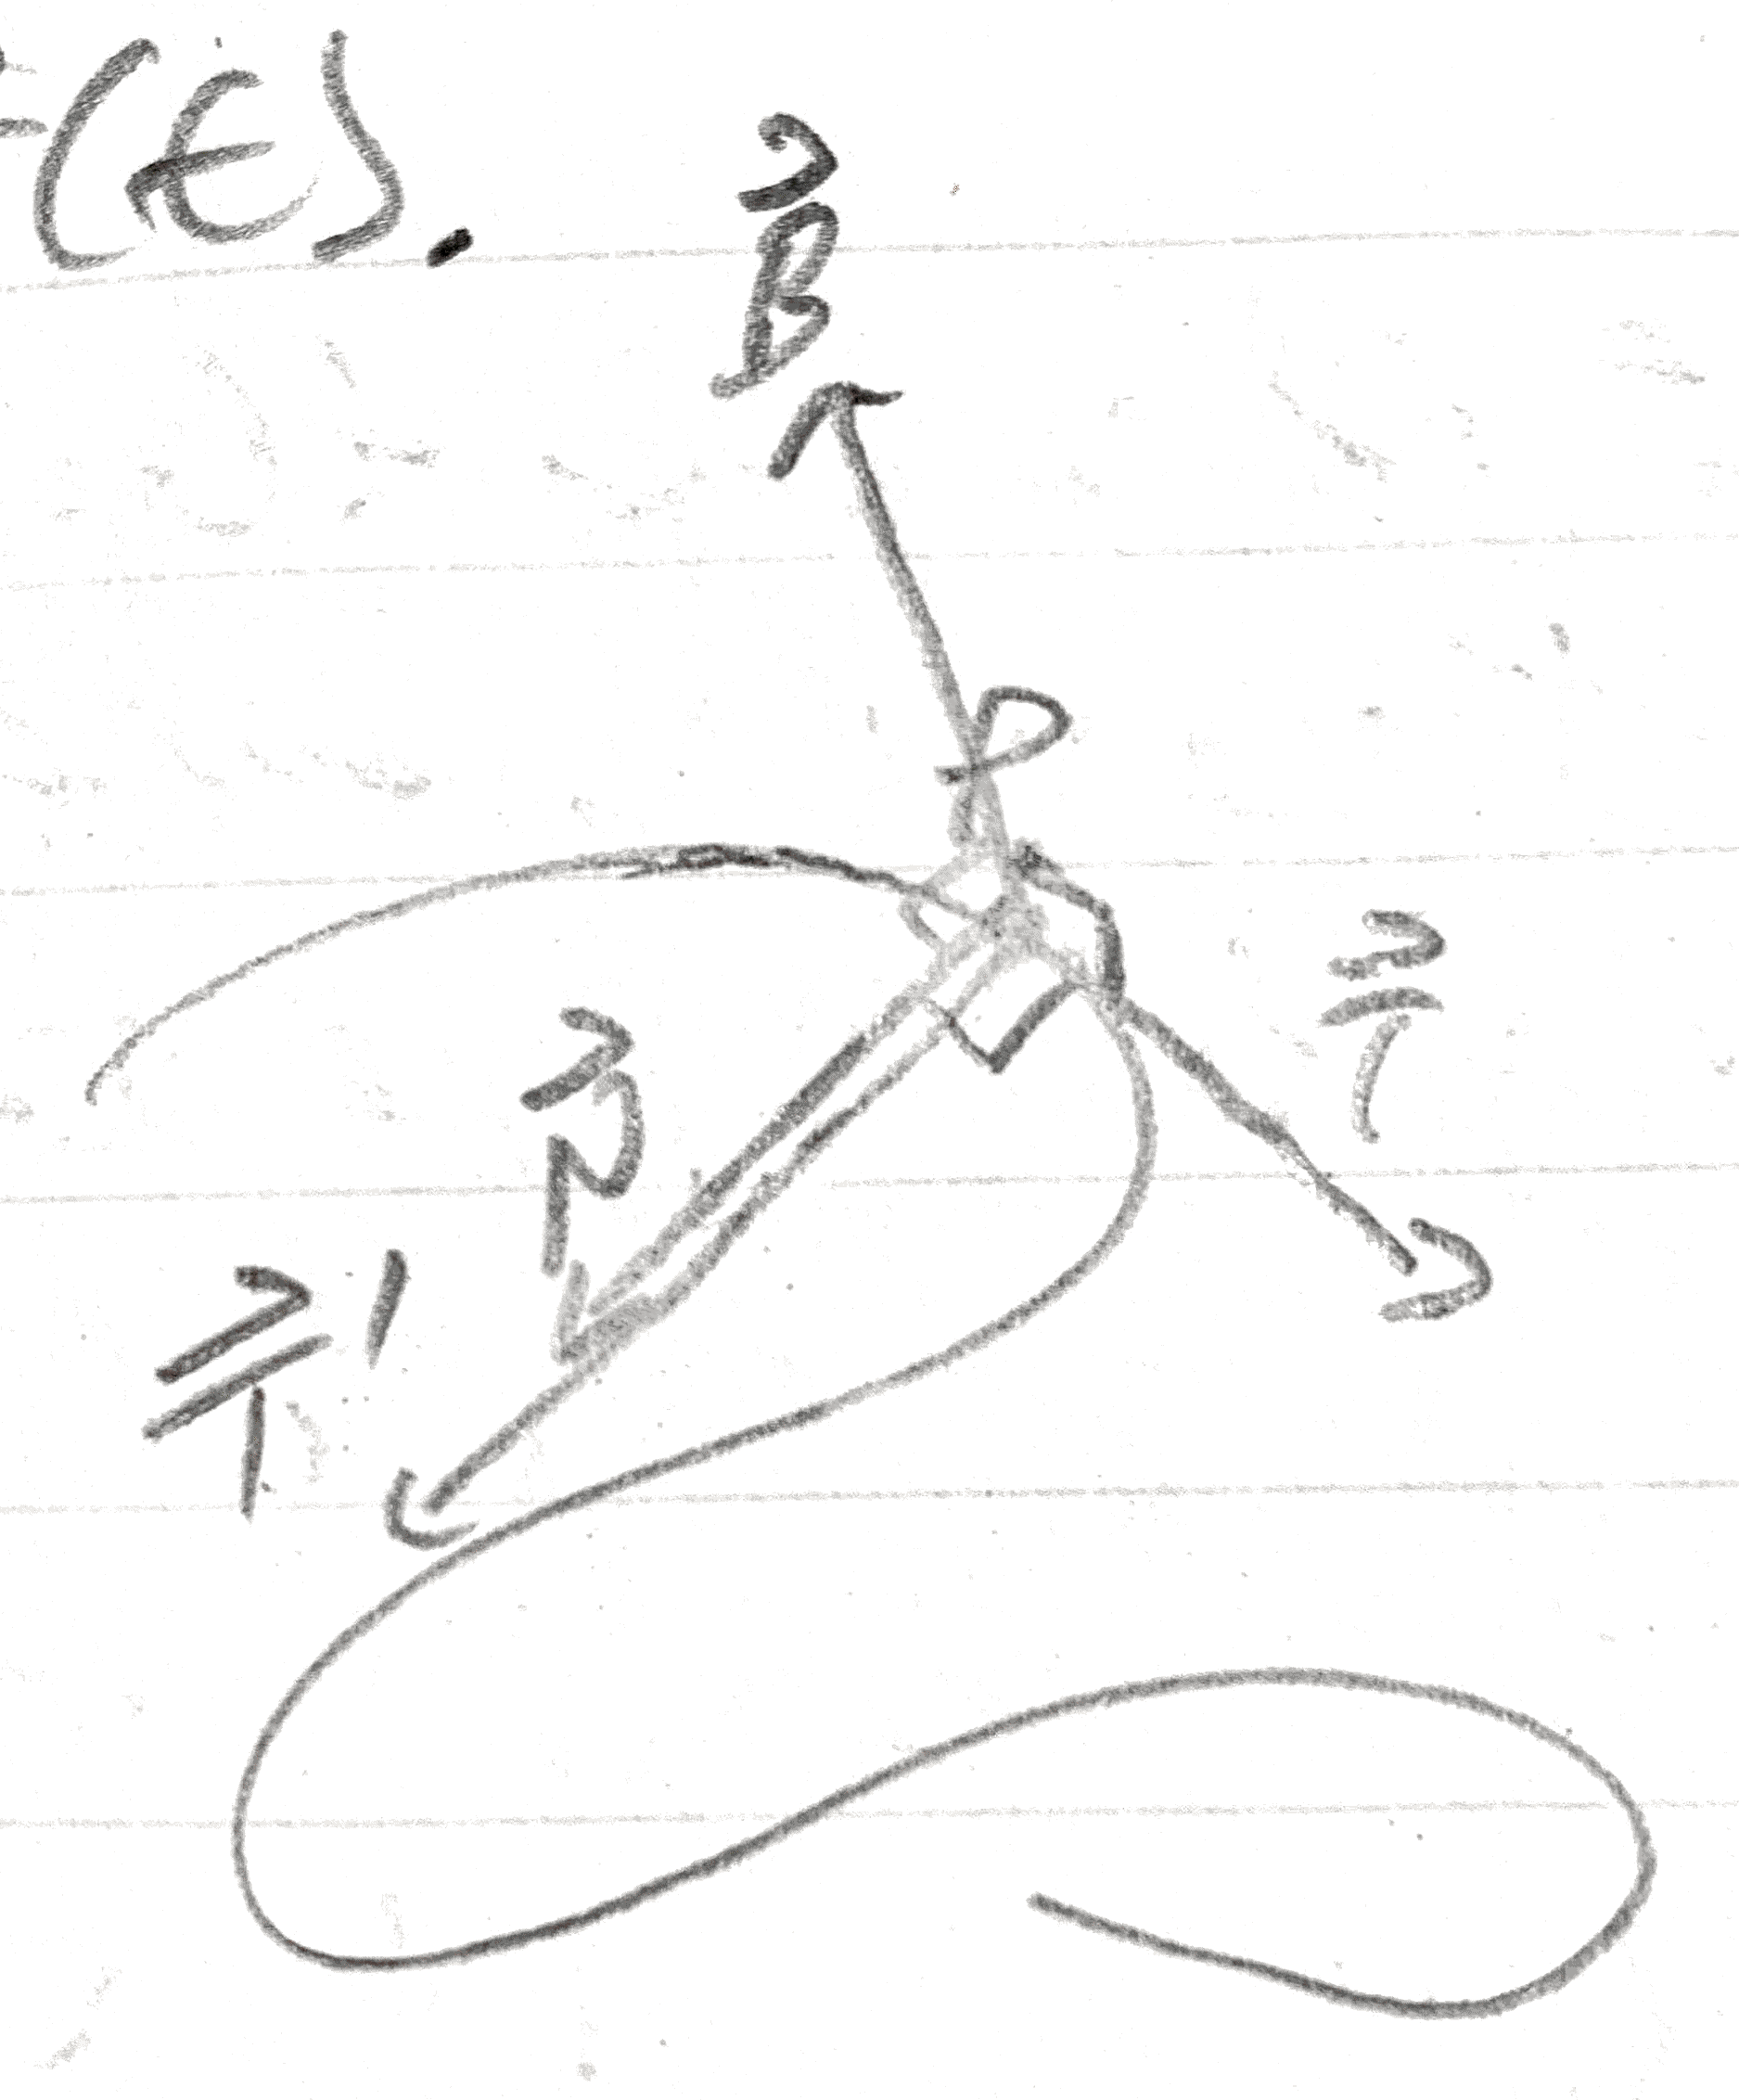 (t).
B⃗
P
T⃗
N⃗
T⃗'